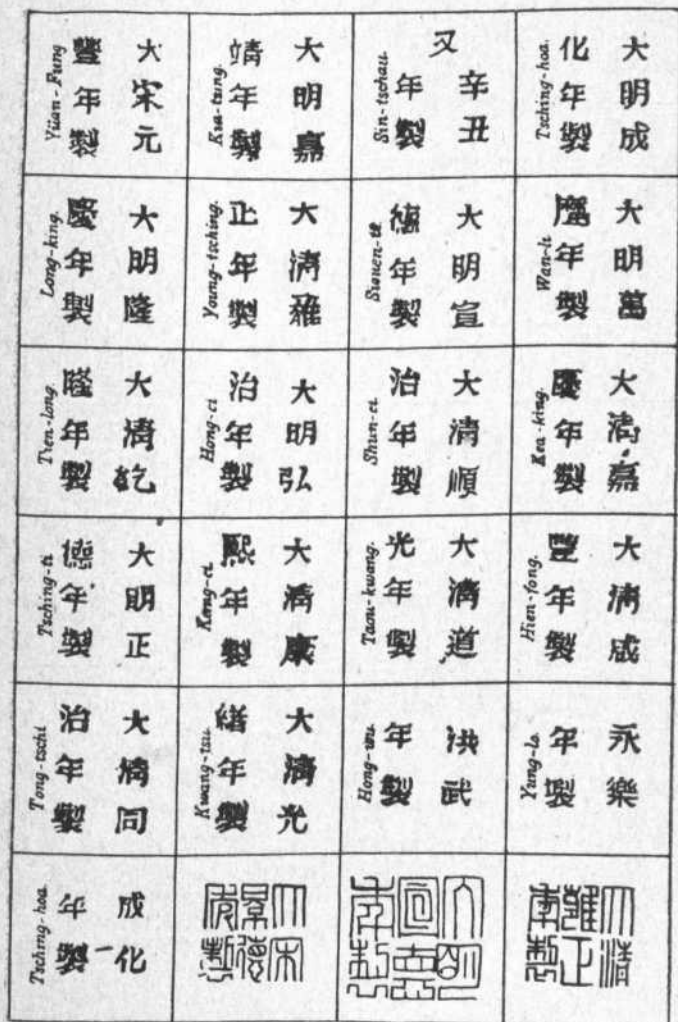 Yüan-Fung
大宋元
豐年製
Kia-tsing.
大明嘉
靖年製
Sin-tschau.
又辛丑
年製
Tsching-hoa.
大明成
化年製
Long-king.
大明隆
慶年製
Young-tsching.
大清雍
正年製
大明宣
德年製
Wan-li
大明萬
曆年製
大清乾
隆年製
Hong-ci
大明弘
治年製
Shun-ci
大清順
治年製
Kea-king.
大清嘉
慶年製
Tsching-ti
大明正
德年製
Kang-ci
大清康
熙年製
Taou-kwang.
大清道
光年製
Hien-fong.
大清咸
豐年製
Tong-tschi
大清同
治年製
Kwang-tsu
大清光
緒年製
Hong-wu
洪武
年製
Yung-lo.
永樂
年製
Tsching-hoa
成化
年製
大宋
景德
年製
大明
宣德
年製
大清
雍正
年製